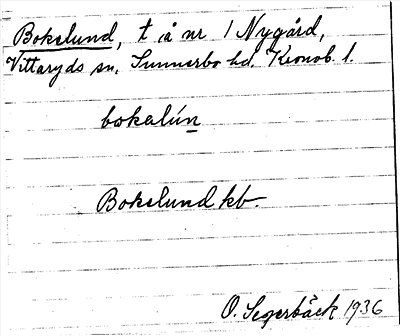 Bokelund, t. å nr 1 Nygård,
Vittaryds sn, Sunnerbo hd, Kronob. l.
bokalún
Bokelund kb.
O. Segerbäck 1936